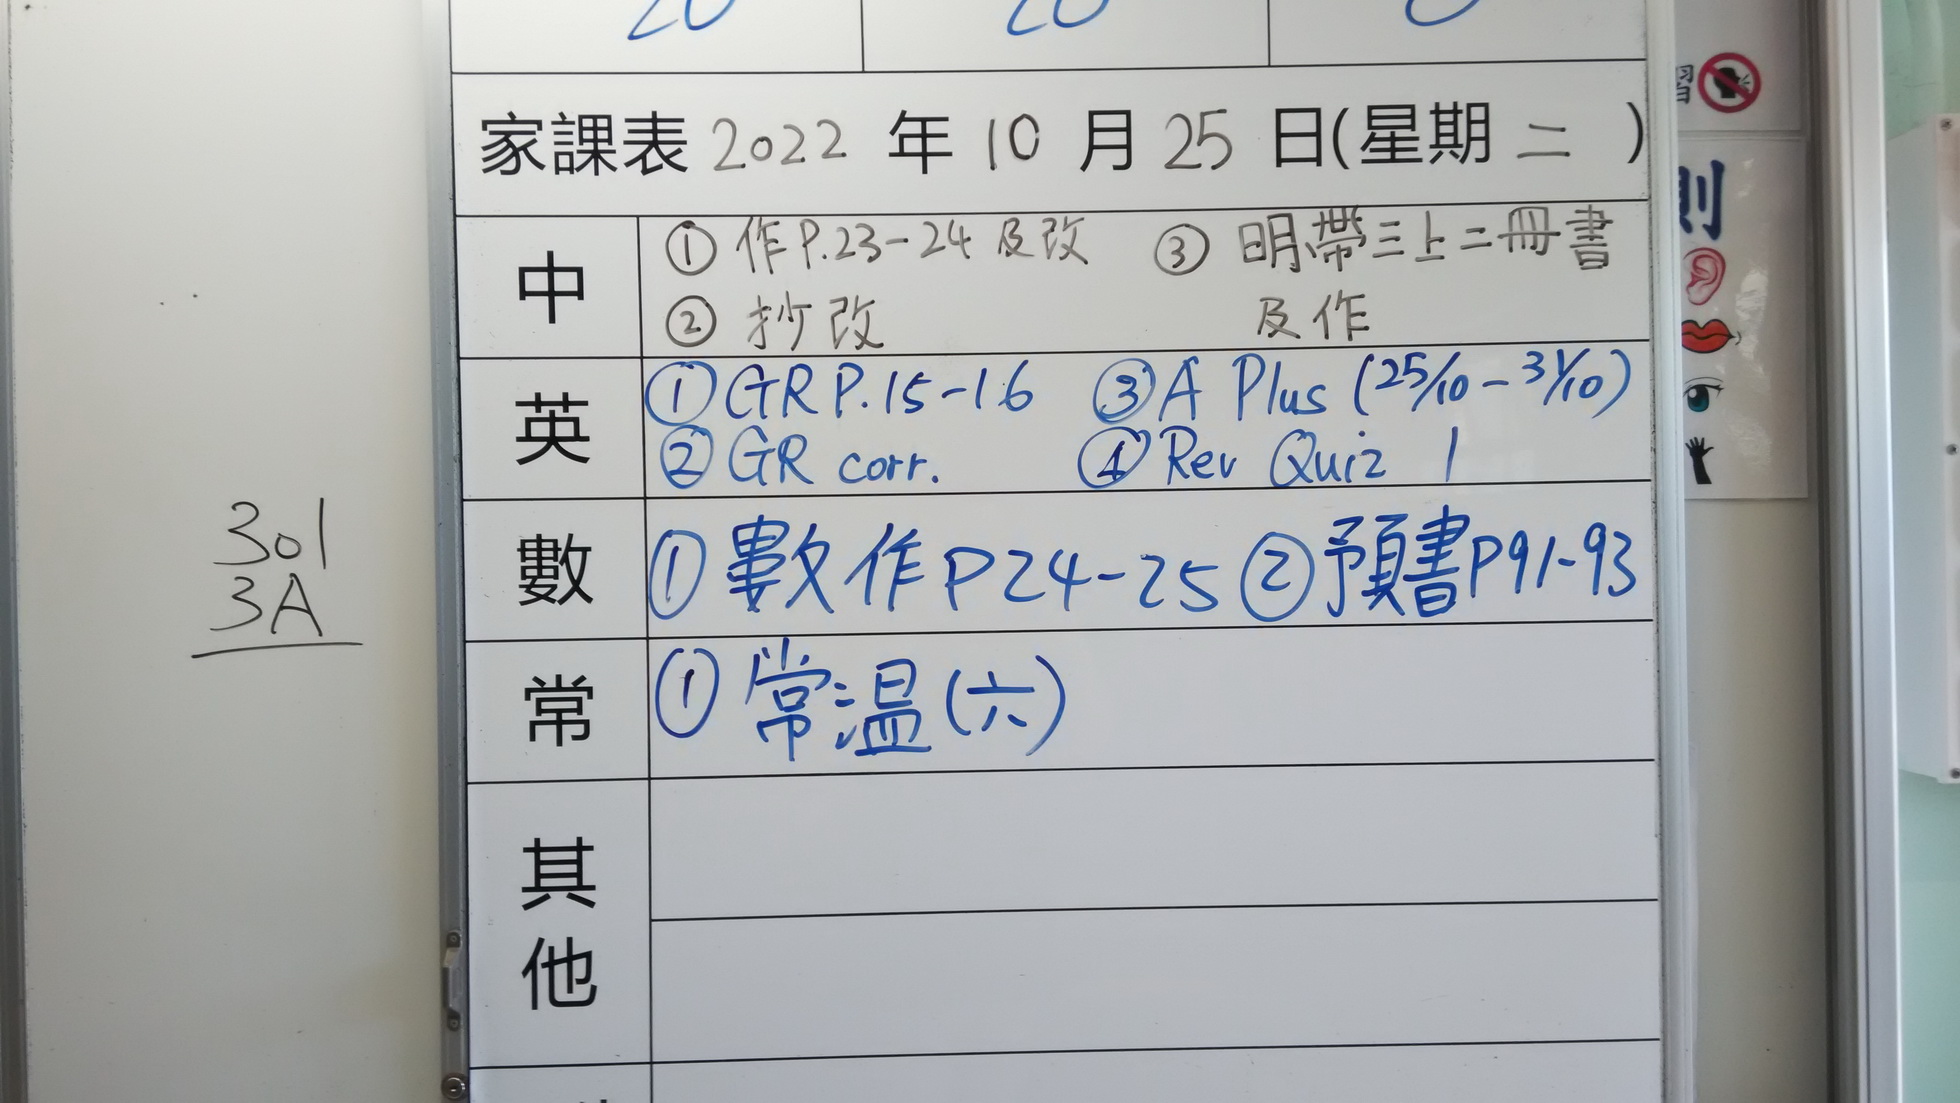 20 20
家課表 2022 年 10 月 25 日(星期 二 )
中 ① 作P.23-24 及改 ③ 明帶三上二冊書
② 抄改 及作
英 ① GR P.15-16 ③ A Plus (25/10 - 31/10)
② GR corr. ④ Rev Quiz 1
數 ① 數作P24-25 ② 預書P91-93
常 ① 常溫(六)
其他
301
3A
習
則